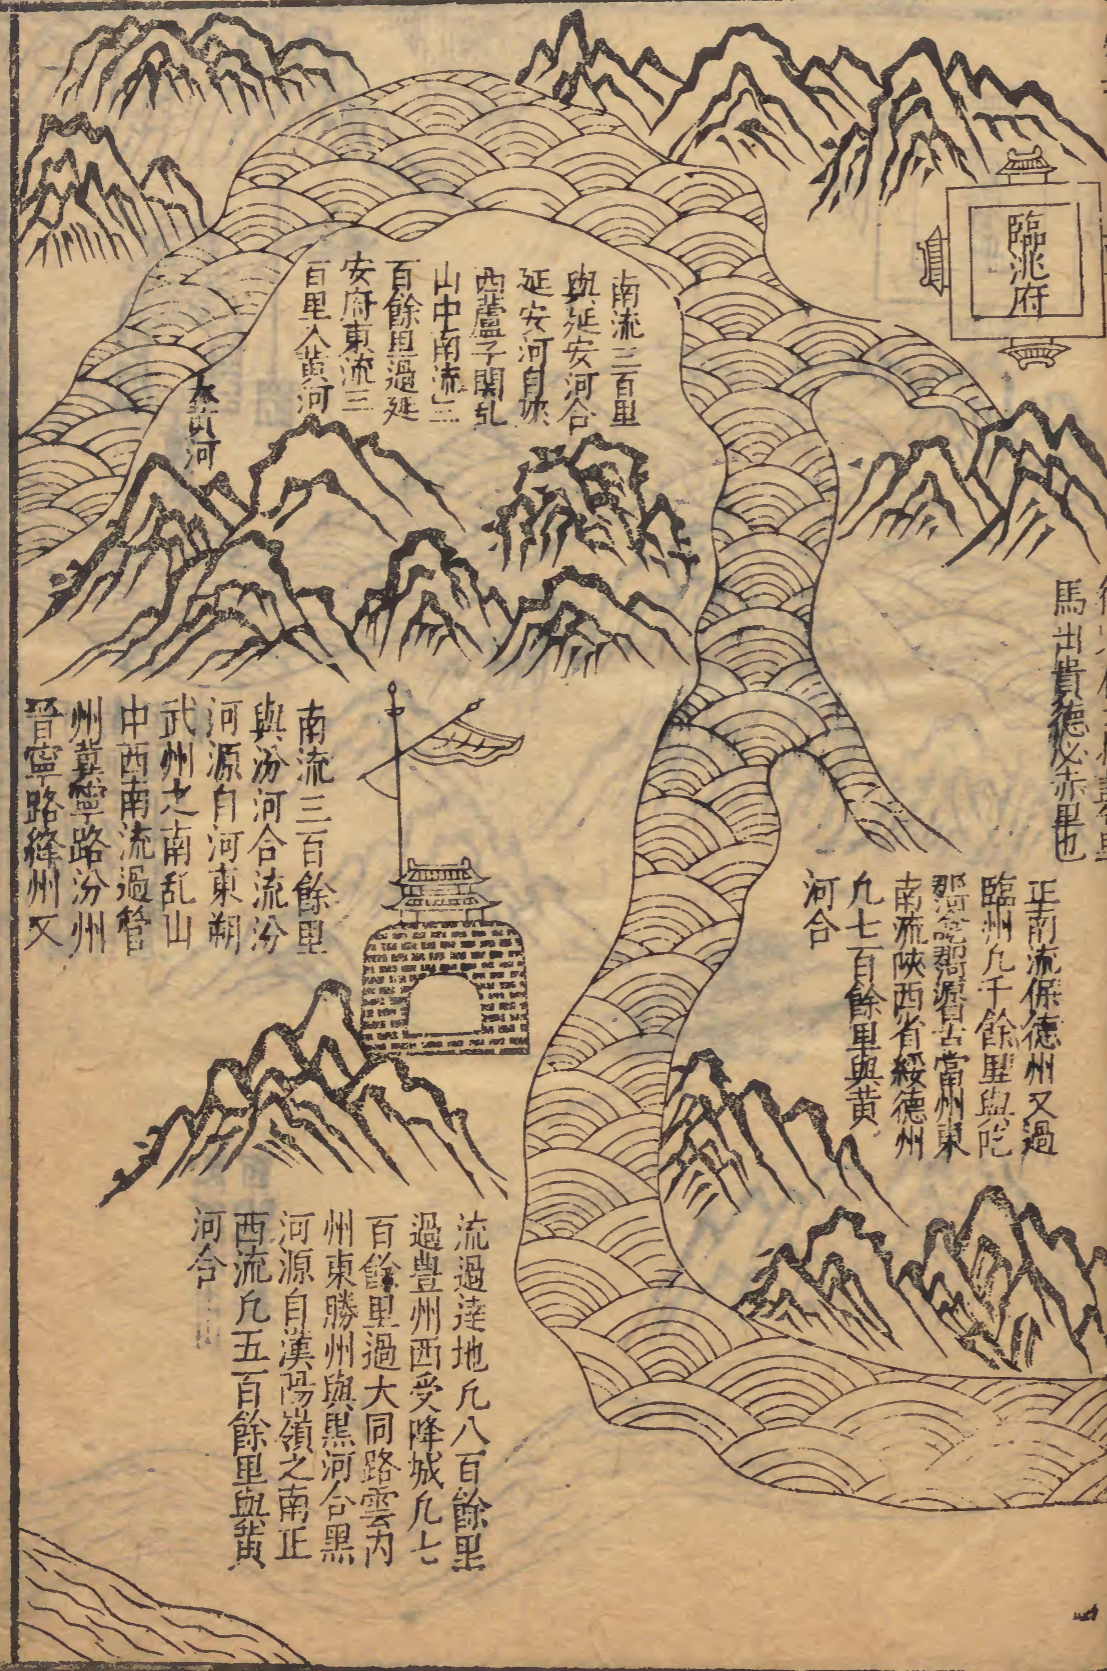 臨洮府
馬出貴德必赤里也
正南流保德州又過
臨州凡千餘里與吃
南流陝西省綏德州
凡七百餘里與黄
河合
南流三百里
與延安河合
延安河自陝
西蘆子関乱
山中南流三
百餘里過延
安府東流三
百里入黄河
大黄河
南流三百餘里
與汾河合流汾
河源自河東朔
武州之南乱山
中西南流過管
州冀寧路汾州
晉寧路絳州又
流過達地凡八百餘里
過豊州西受降城凡七
百餘里過大同路雲内
州東勝州與黒河合黒
河源自漢陽嶺之南正
西流凡五百餘里與黄
河合